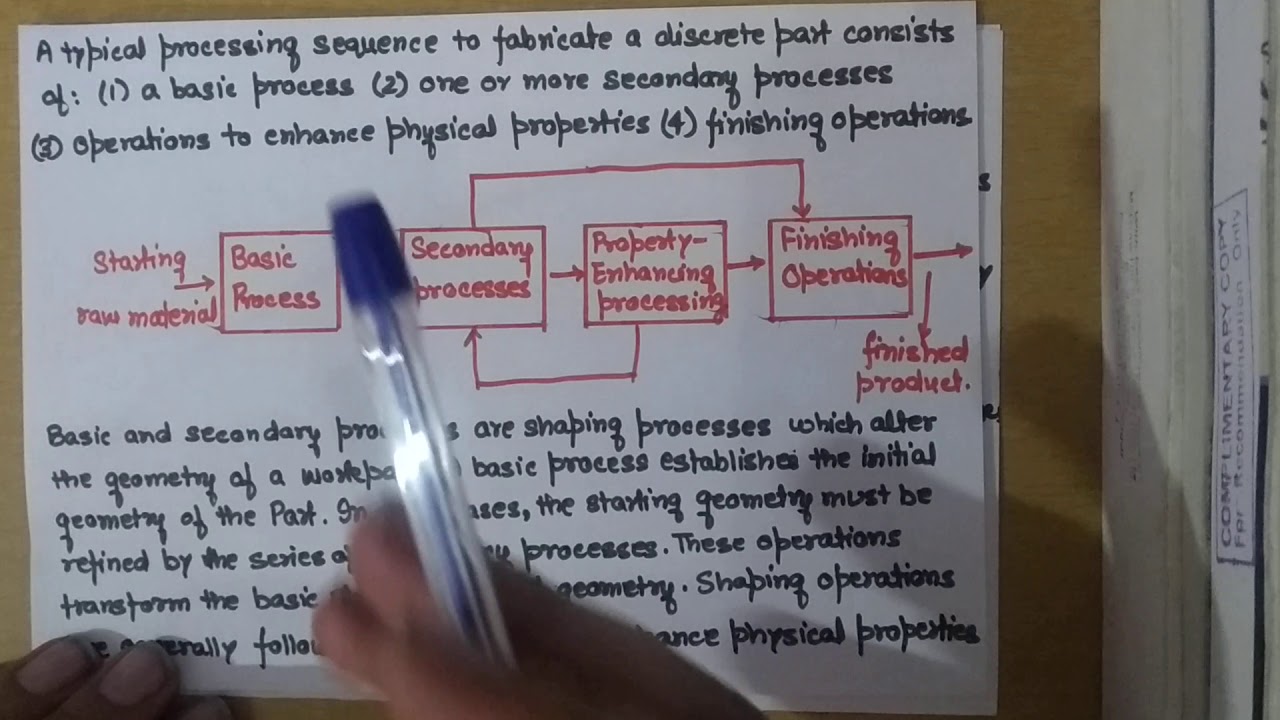 A typical processing sequence to fabricate a discrete part consists
of: (1) a basic process (2) one or more secondary processes
(3) operations to enhance physical properties (4) finishing operations
Starting
raw material
Basic
Process
Secondary
processes
Property-
Enhancing
processing
Finishing
Operations
finished
product.
Basic and secondary are shaping processes which alter
the geometry of a basic process establishes the initial
geometry of the Part. In the starting geometry must be
refined by the series processes. These operations
transform the basic geometry. Shaping operations
physical properties
COMPLIMENTARY COPY
For Recommendation Only